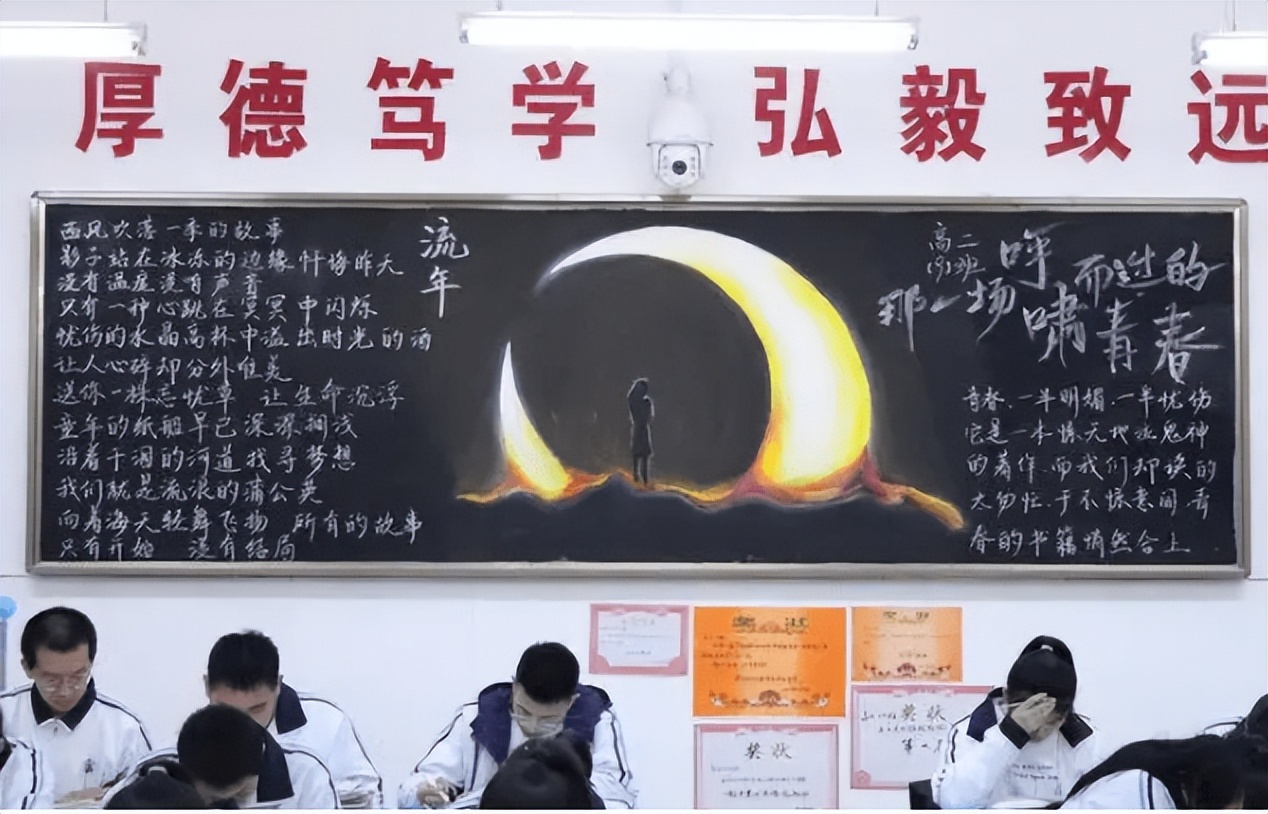 厚德笃学 弘毅致远
流年
西风吹落一季的故事
影子站在冰冻的边缘忏悔昨天
没有温度没有声音
只有一种心跳在冥冥中闪烁
忧伤的水晶高杯中溢出时光的酒
让人心碎却分外唯美
送你一株忘忧草 让生命沉浮
童年的纸船早已深深搁浅
沿着干涸的河道找寻梦想
我们就是流浪的蒲公英
向着海天轻舞飞扬 所有的故事
只有开始 没有结局
高二
191班
那一场
呼啸而过的
青春
青春.一半明媚.一半忧伤
它是一本惊天地泣鬼神
的著作.而我们却读的
太匆忙.于不惊意间.青
春的书籍悄然合上.
奖状
奖状
奖状
奖状